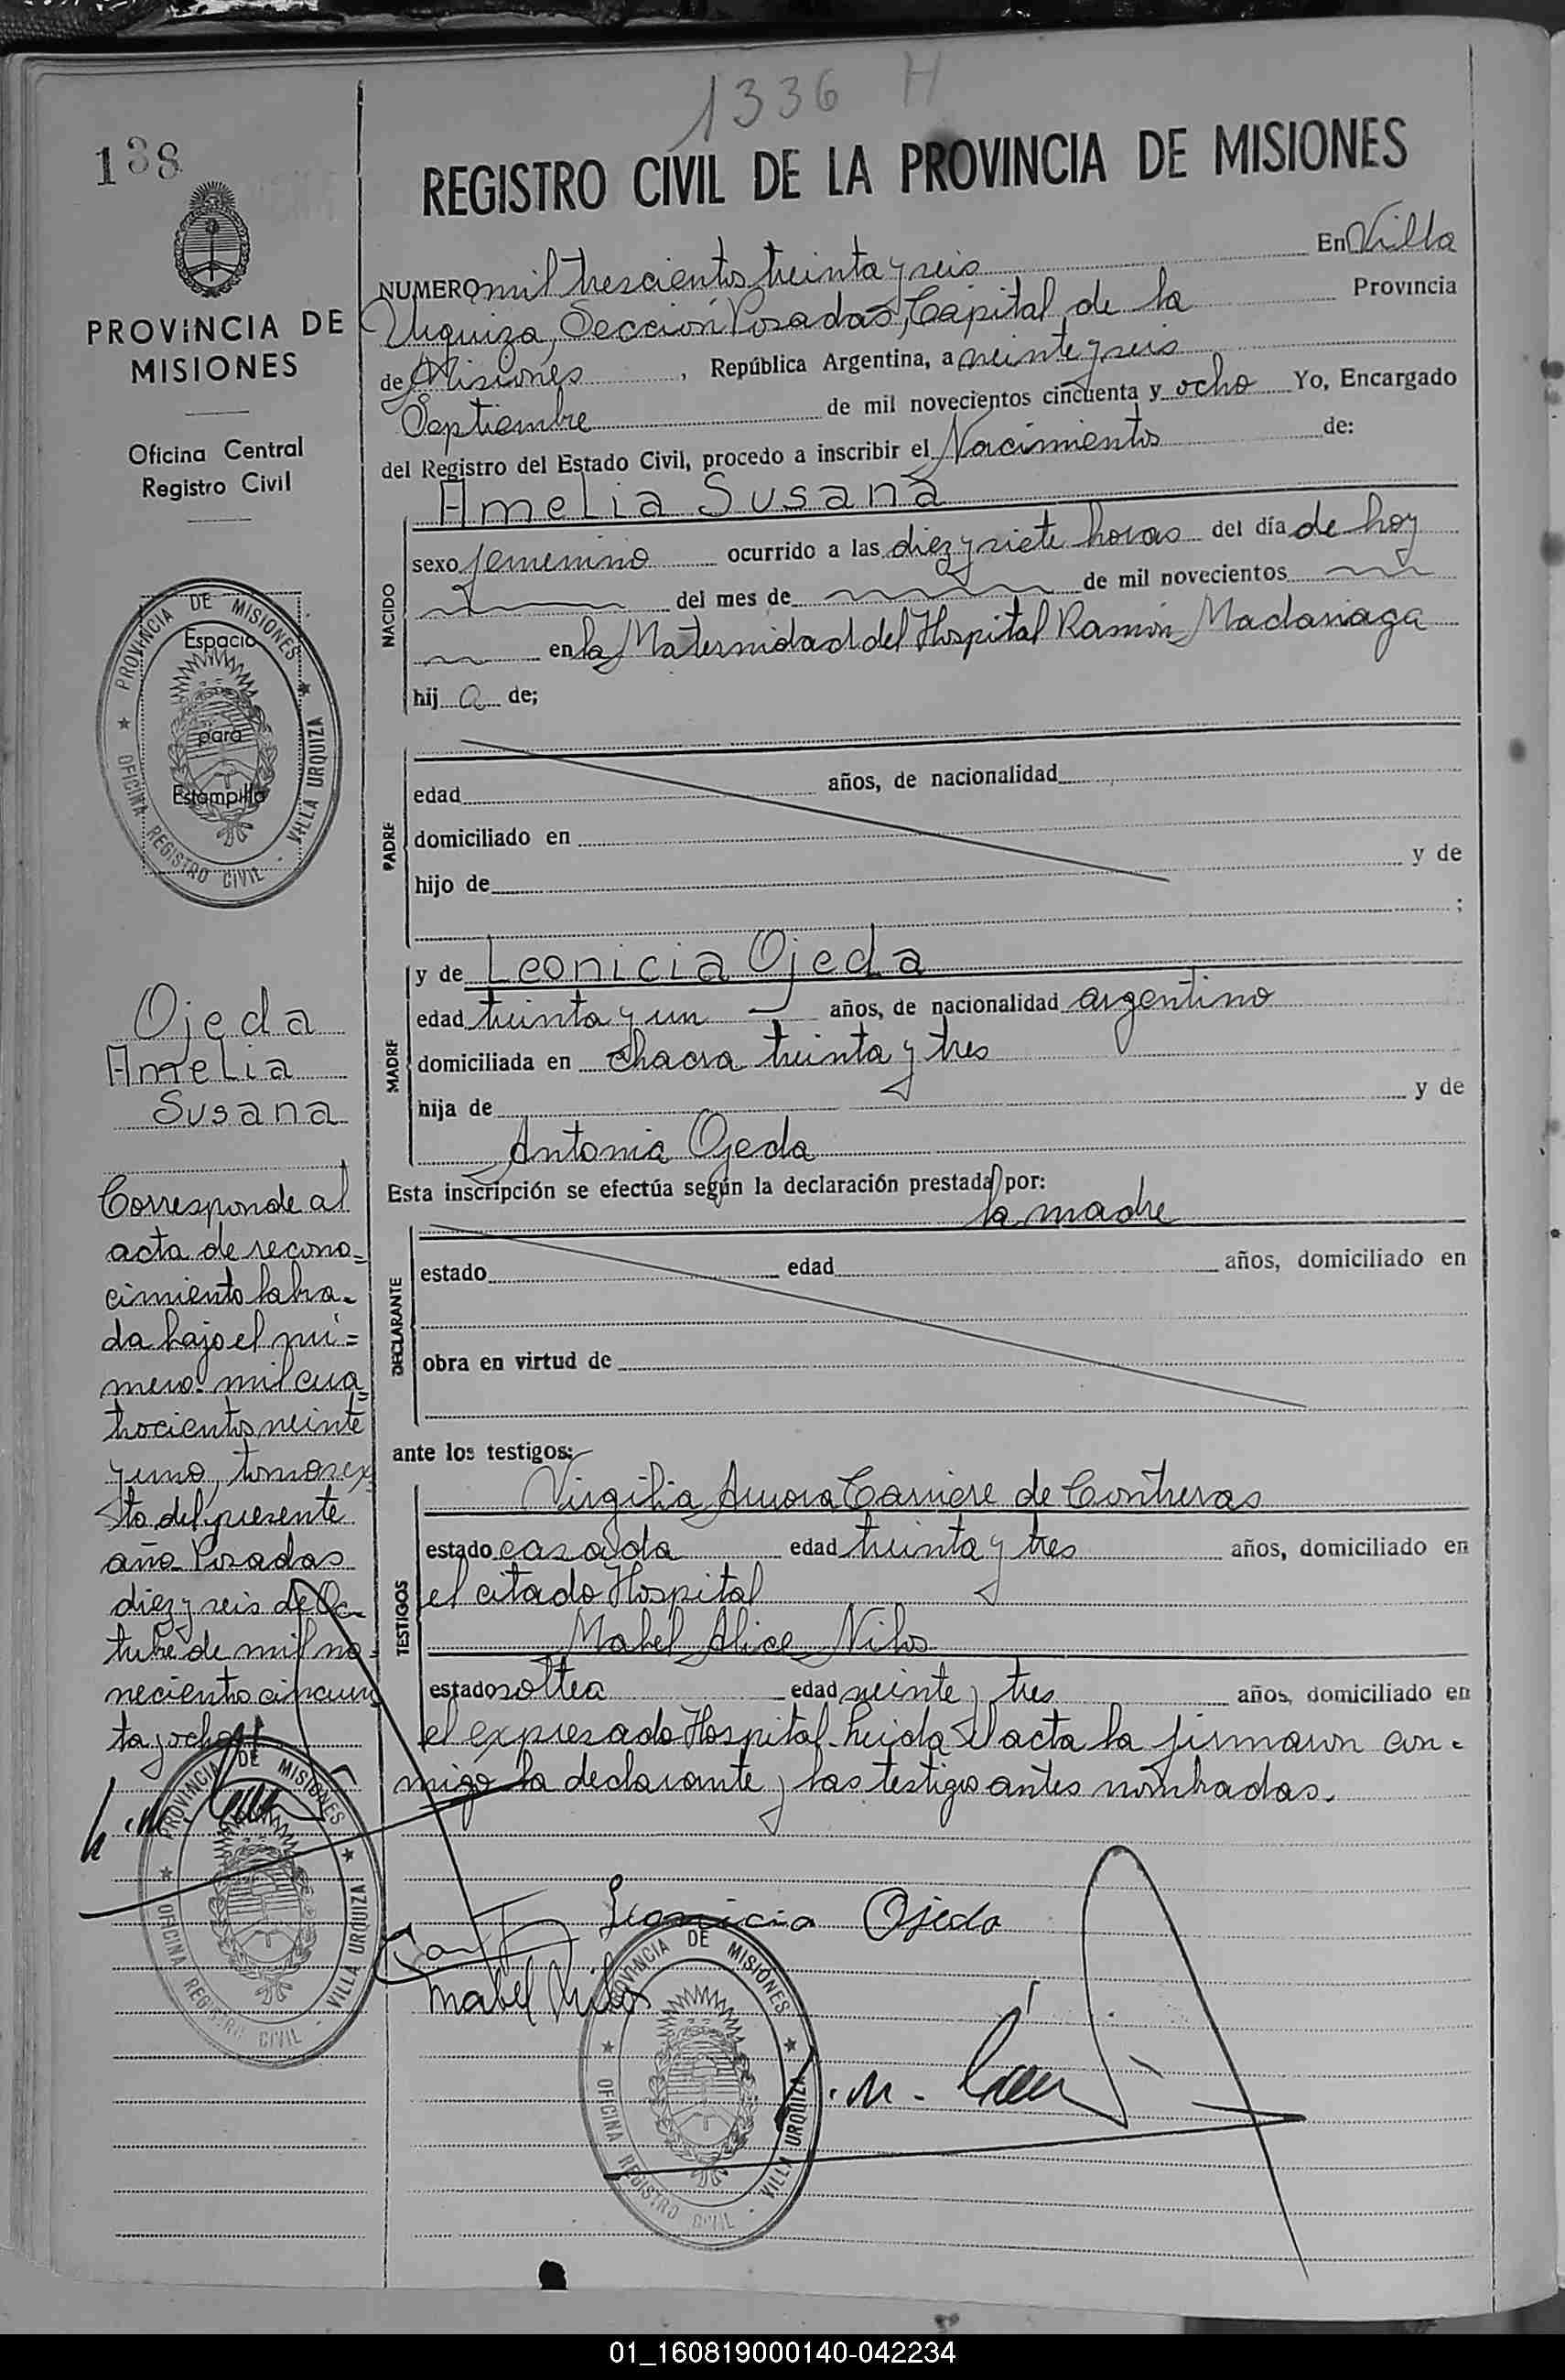 1336 H
138
REGISTRO CIVIL DE LA PROVINCIA DE MISIONES
PROVINCIA DE
MISIONES
Oficina Central
Registro Civil
NUMERO mil trescientos treinta y seis En Villa
Urquiza, Sección Posadas, Capital de la Provincia
de Misiones, República Argentina, a veinte y seis
Septiembre de mil novecientos cincuenta y ocho Yo, Encargado
del Registro del Estado Civil, procedo a inscribir el Nacimiento de:
Amelia Susana
NACIDO
sexo femenino ocurrido a las diez y siete horas del día de hoy
del mes de de mil novecientos
en la Maternidad del Hospital Ramón Madariaga
hij a de;
PROVINCIA DE MISIONES
OFICINA REGISTRO CIVIL - VILLA URQUIZA
Espacio
para
Estampilla
PADRE
edad años, de nacionalidad
domiciliado en
hijo de y de
;
MADRE
y de Leonicia Ojeda
edad treinta y un años, de nacionalidad argentino
domiciliada en chacra treinta y tres
hija de y de
Antonia Ojeda
Esta inscripción se efectúa según la declaración prestada por:
la madre
DECLARANTE
estado edad años, domiciliado en
obra en virtud de
ante los testigos:
TESTIGOS
Virgilia Aurora Carriere de Contreras
estado casada edad treinta y tres años, domiciliado en
el citado Hospital
Mabel Alice Nilos
estado soltea edad veinte y tres años, domiciliado en
el expresado Hospital. Leida el acta la firmaron con-
migo la declarante y las testigos antes nombradas.
Ojeda
Amelia
Susana
Corresponde al
acta de recono-
cimiento labra-
da bajo el nú=
mero mil cua
trocientos veinte
y uno, tomo sex
sto del presente
año Posadas
diez y seis de Oc-
tubre de mil no
vecientos cincuen
ta y ocho
PROVINCIA DE MISIONES
OFICINA REGISTRO CIVIL - VILLA URQUIZA
Leonicia Ojeda
Mabel Nilos
PROVINCIA DE MISIONES
OFICINA REGISTRO CIVIL - VILLA URQUIZA
01_160819000140-042234